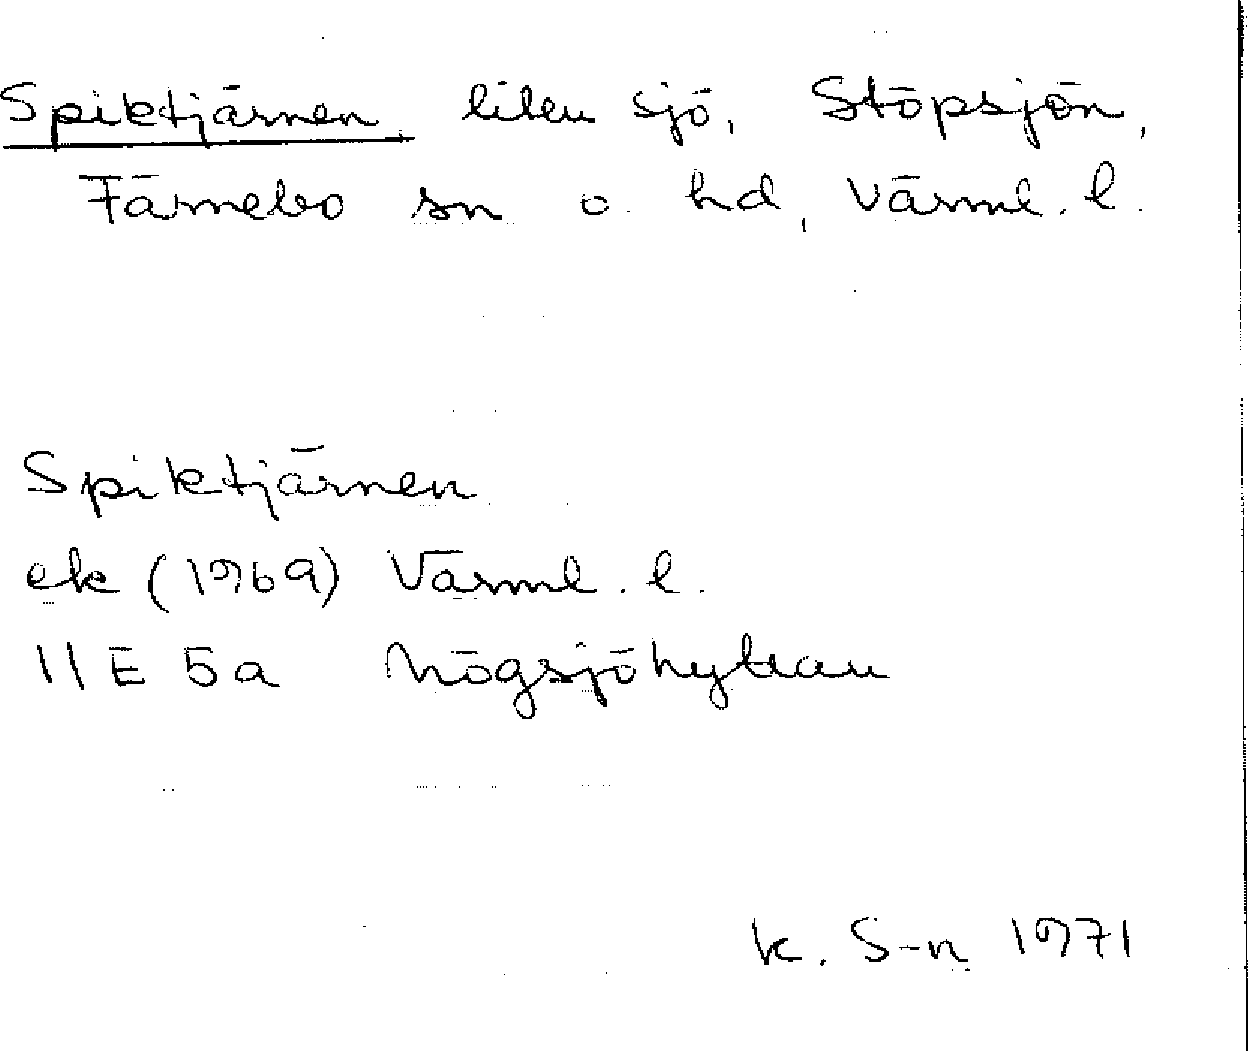 Spiktjärnen, liten sjö, Stöpsjön,
Färnebo sn o. hd, Värml. l.
Spiktjärnen
ek (1969) Värml. l.
11 E 5a Högsjöhyttan
K. S-n 1971